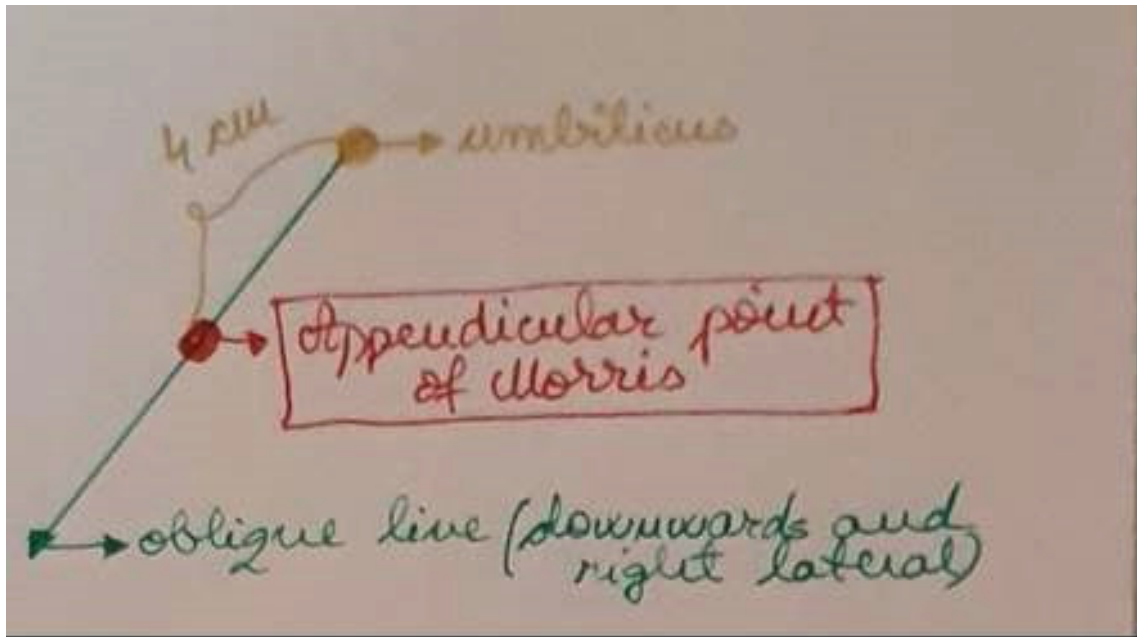 4 cm
umbilicus
Appendicular point
of Morris
oblique line (downwards and
right lateral)